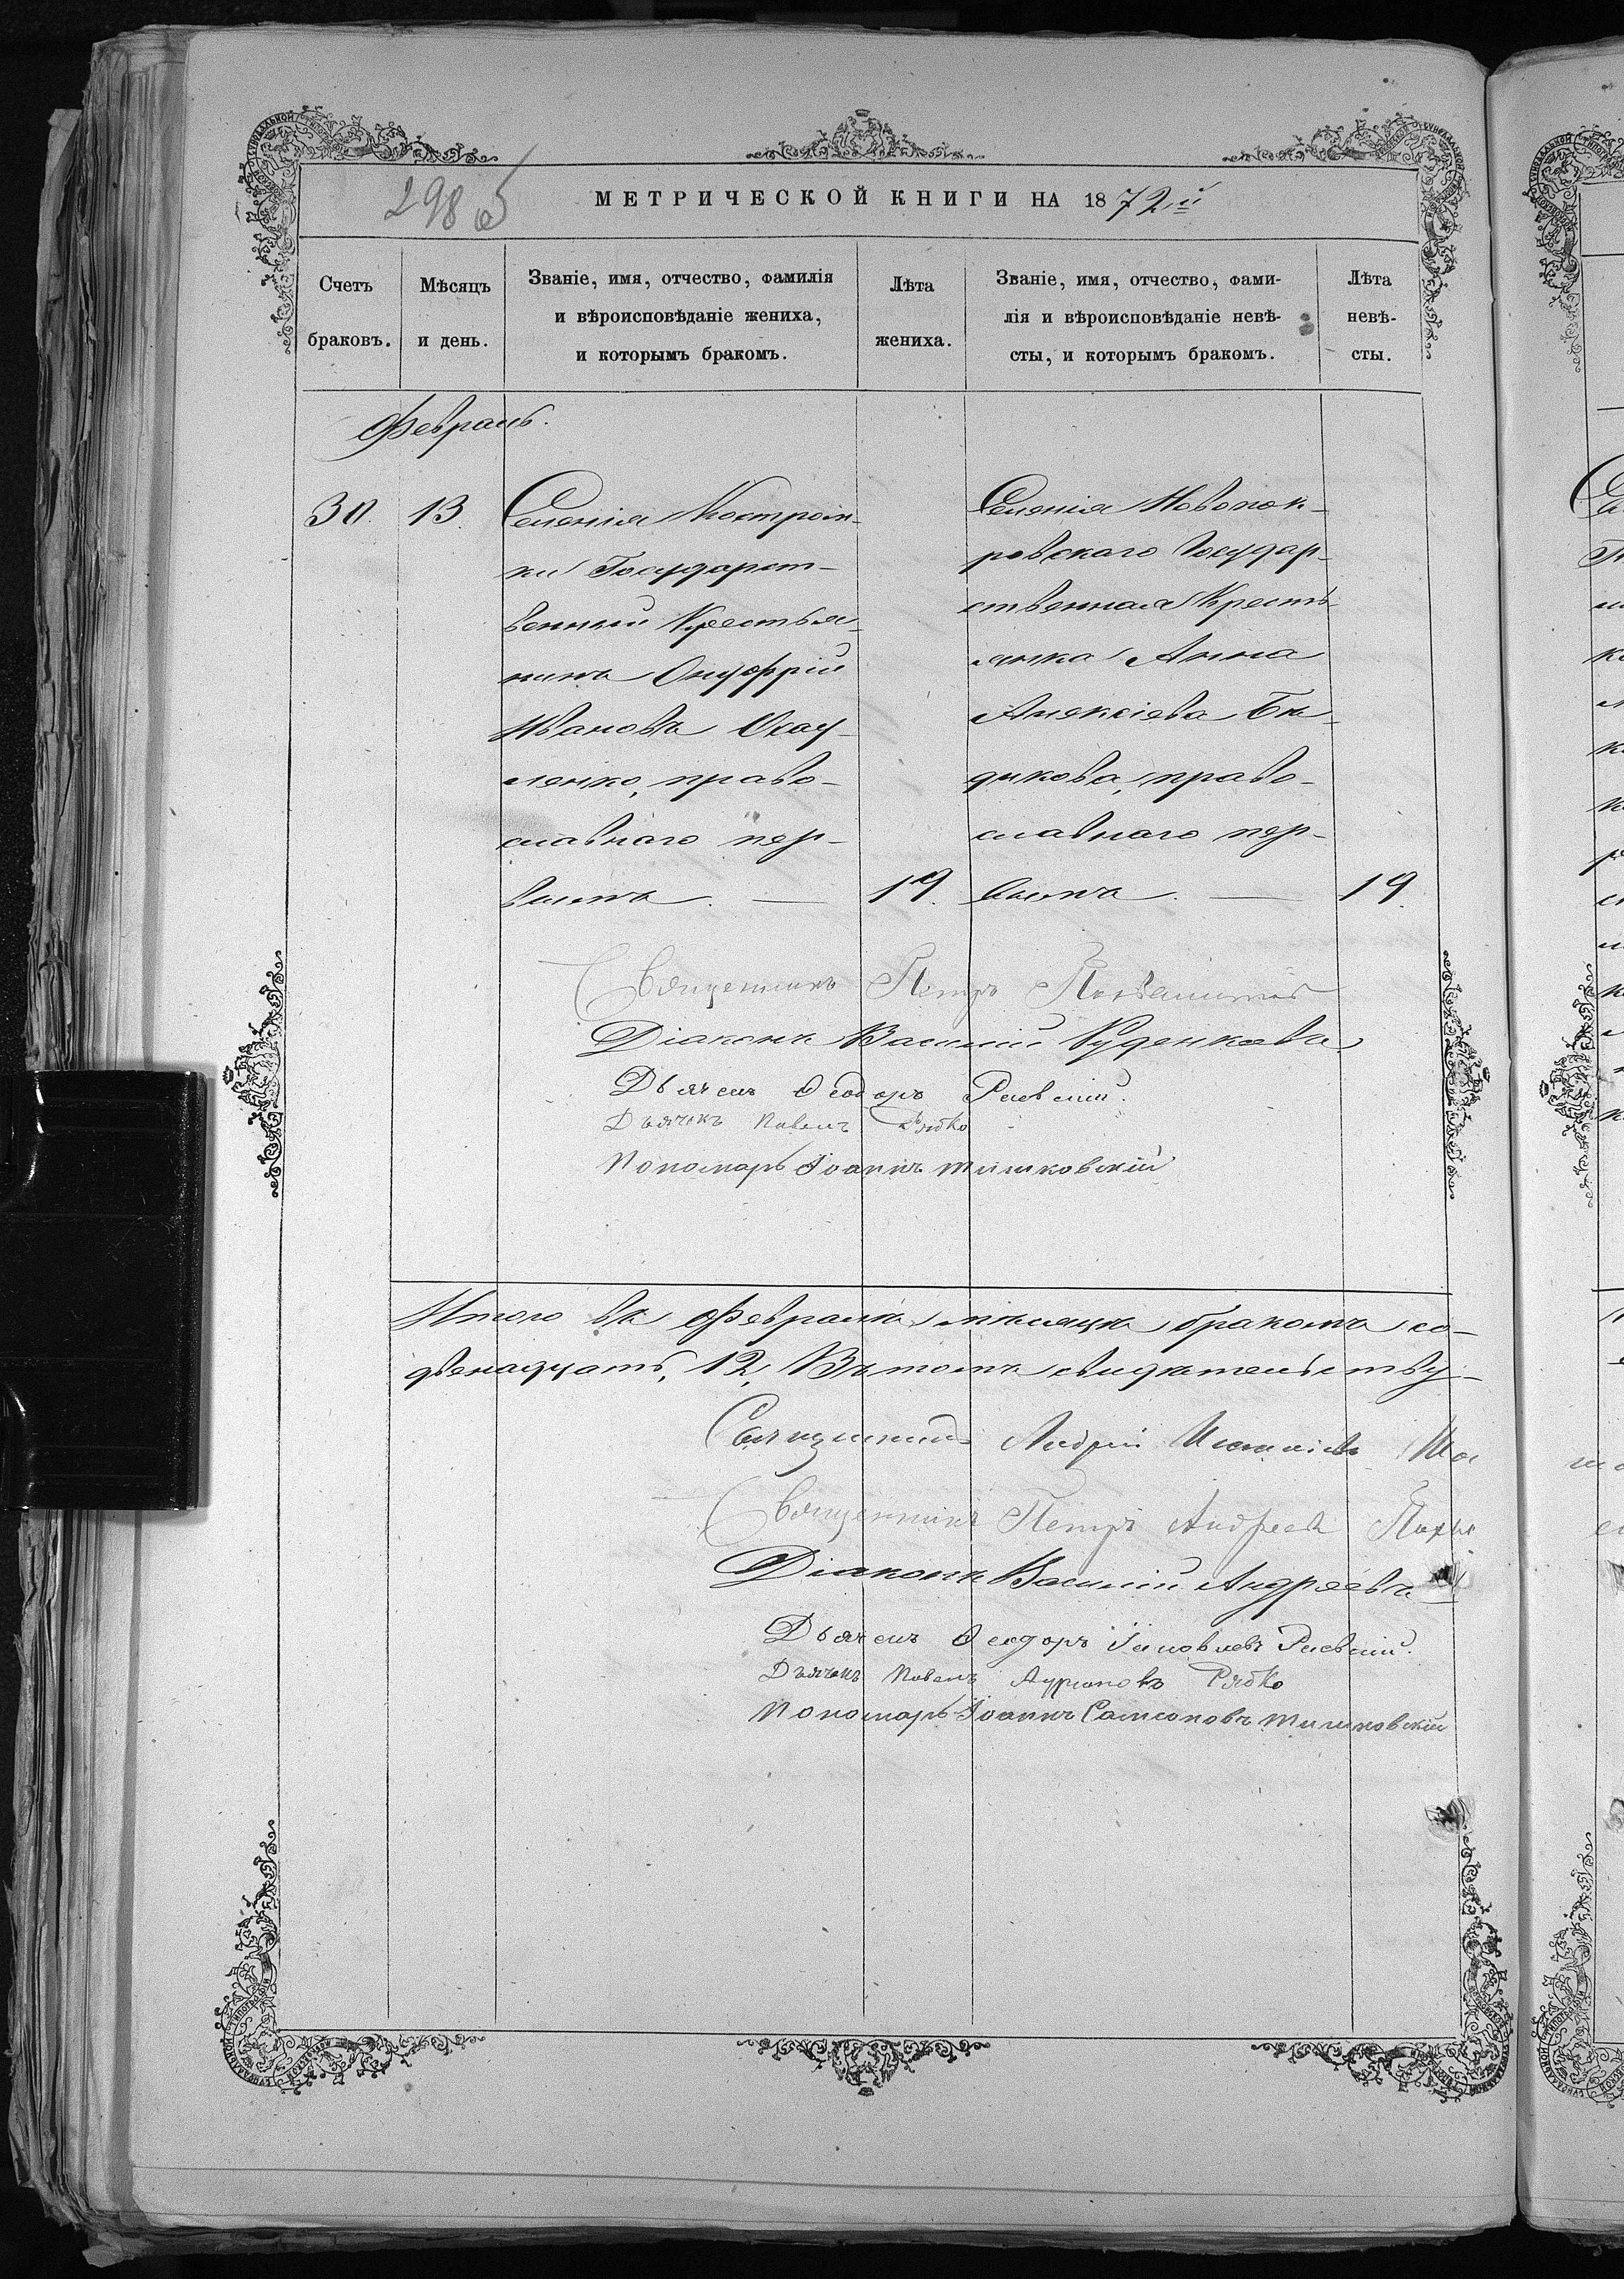 298 об
МЕТРИЧЕСКОЙ КНИГИ НА 1872й
Счетъ
браковъ.
Мѣсяцъ
и день.
Званіе, имя, отчество, фамилія
и вѣроисповѣданіе жениха,
и которымъ бракомъ.
Лѣта
жениха.
Званіе, имя, отчество, фами-
лія и вѣроисповѣданіе невѣ-
сты, и которымъ бракомъ.
Лѣта
невѣ-
сты.
Февраль.
30. 13.
Селенія Костром-
ки Государст-
венный Крестья-
нинъ Онуфрій
Ивановъ
ленко, право-
славнаго пер-
вымъ. — 19.
Селенія Новопок-
ровскаго Государ-
ственная Кресть-
янка Анна
Алексіева Бѣ-
дикова, право-
славнаго пер-
вымъ. — 19.
Священникъ Петръ
Діаконъ Василій Руденковъ
Дьячекъ Ѳеодоръ Раевскій.
Дьячокъ Павелъ Рябко
Пономарь Іоаннъ Тишковскій
Итого въ Февралѣ мѣсяцѣ бракомъ со-
двенадцать, 12, Въ томъ свидѣтельству-
Священникъ Андрей
Священникъ Петръ Андреевъ
Діаконъ Василій Андреевъ
Дьячекъ Ѳеодоръ Іаковлевъ Раевскій.
Дьячокъ Павелъ Рябко
Пономарь Іоаннъ Самсоновъ Тишковскій